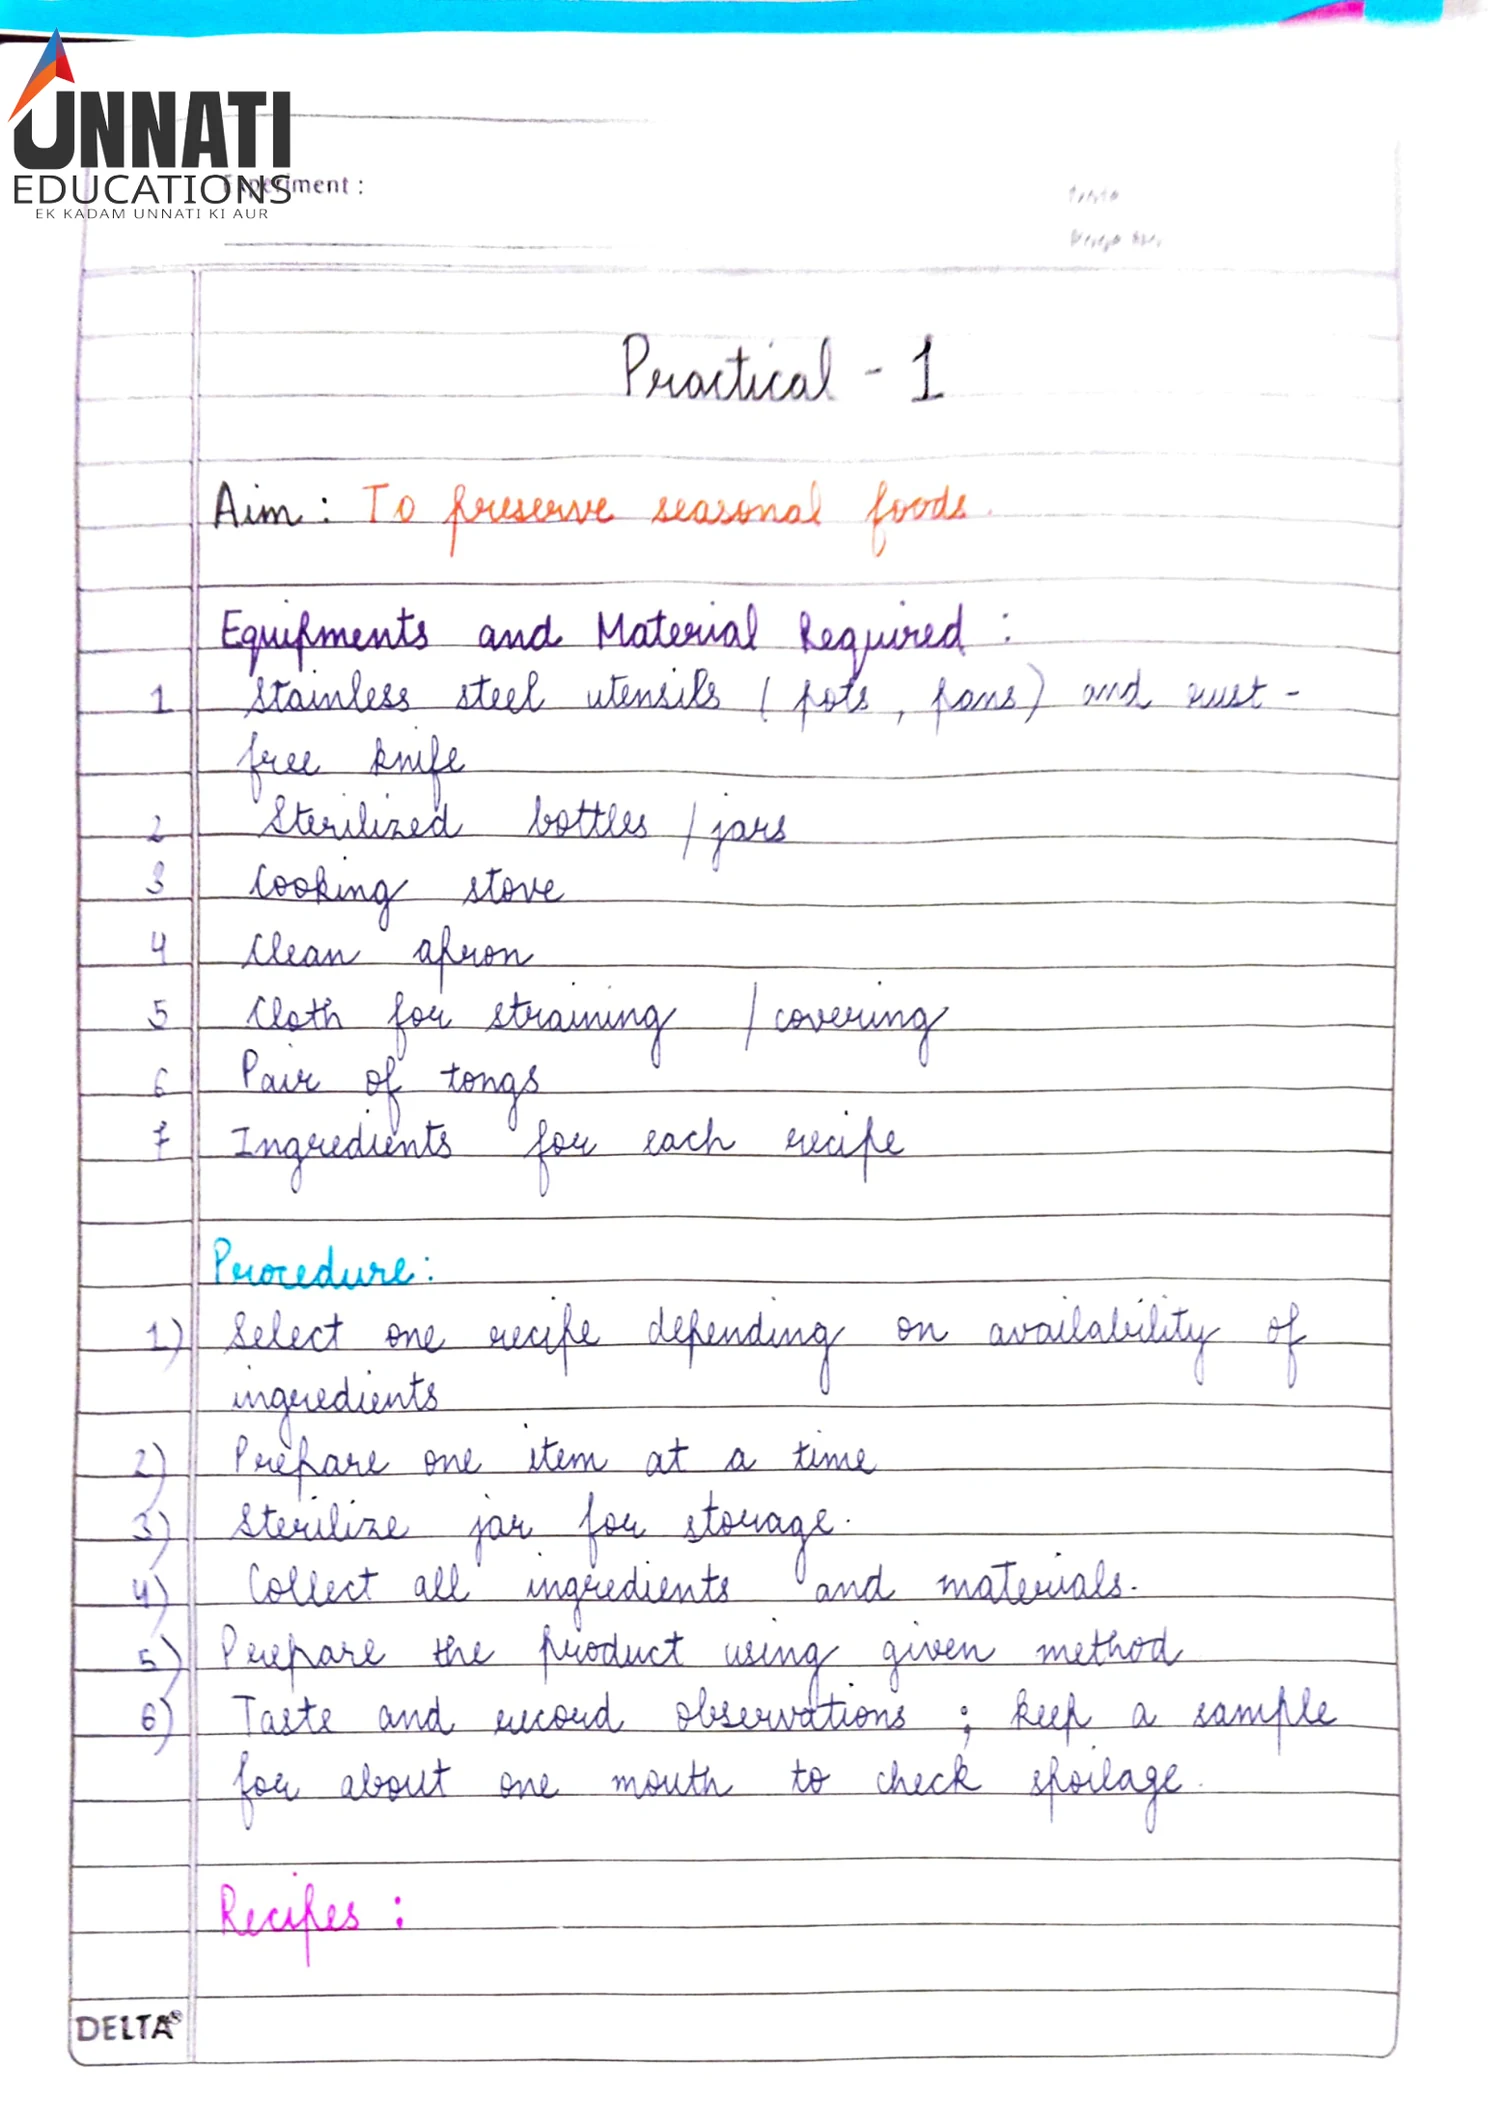 UNNATI
EDUCATIONS
EK KADAM UNNATI KI AUR
Experiment :
Practical - 1
Aim : To preserve seasonal foods.
Equipments and Material Required :
1 Stainless steel utensils ( pots , pans ) and rust -
free knife
2 Sterilized bottles / jars
3 Cooking stove
4 Clean apron
5 Cloth for straining / covering
6 Pair of tongs
7 Ingredients for each recipe
Procedure :
1) Select one recipe depending on availability of
ingredients
2) Prepare one item at a time
3) Sterilize jar for storage.
4) Collect all ingredients and materials.
5) Prepare the product using given method
6) Taste and record observations ; keep a sample
for about one mouth to check spoilage.
Recipes :
DELTA